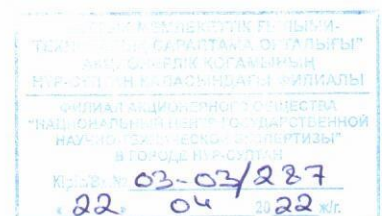 МЕМЛЕКЕТТІК ҒЫЛЫМИ-
ТЕХНИКАЛЫҚ САРАПТАМА ОРТАЛЫҒЫ"
АКЦИОНЕРЛІК ҚОҒАМЫНЫҢ
НҰР-СҰЛТАН ҚАЛАСЫНДАҒЫ ФИЛИАЛЫ
ФИЛИАЛ АКЦИОНЕРНОГО ОБЩЕСТВА
"НАЦИОНАЛЬНЫЙ ЦЕНТР ГОСУДАРСТВЕННОЙ
НАУЧНО-ТЕХНИЧЕСКОЙ ЭКСПЕРТИЗЫ"
В ГОРОДЕ НУР-СУЛТАН
№ 03-03/287
« 22 » 04 2022 ж/г.